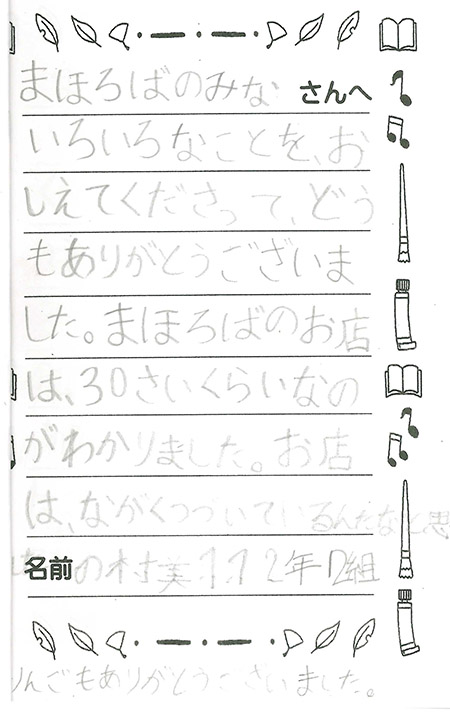 まほろばのみな さんへ
いろいろなことを、お
しえてくださって、どう
もありがとうございま
した。まほろばのお店
は、30さいくらいなの
がわかりました。お店
は、ながくつづいているんだなと思
名前 の村美 2年2組
りんごもありがとうございました。